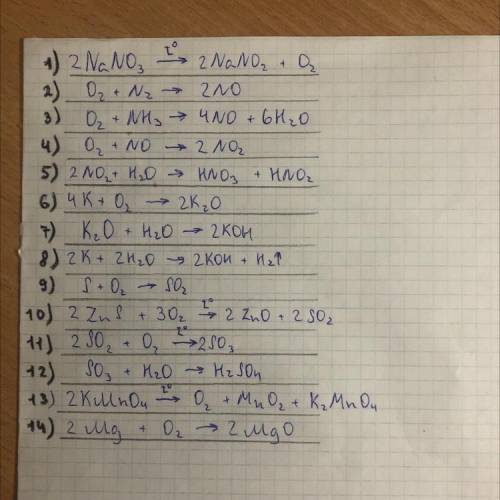 1) 2NaNO₃ t° → 2NaNO₂ + O₂
2) O₂ + N₂ → 2NO
3) O₂ + NH₃ → 4NO + 6H₂O
4) O₂ + NO → 2NO₂
5) 2NO₂ + H₂O → HNO₃ + HNO₂
6) 4K + O₂ → 2K₂O
7) K₂O + H₂O → 2KOH
8) 2K + 2H₂O → 2KOH + H₂↑
9) S + O₂ → SO₂
10) 2ZnS + 3O₂ t° → 2ZnO + 2SO₂
11) 2SO₂ + O₂ t° → 2SO₃
12) SO₃ + H₂O → H₂SO₄
13) 2KMnO₄ t° → O₂ + MnO₂ + K₂MnO₄
14) 2Mg + O₂ → 2MgO